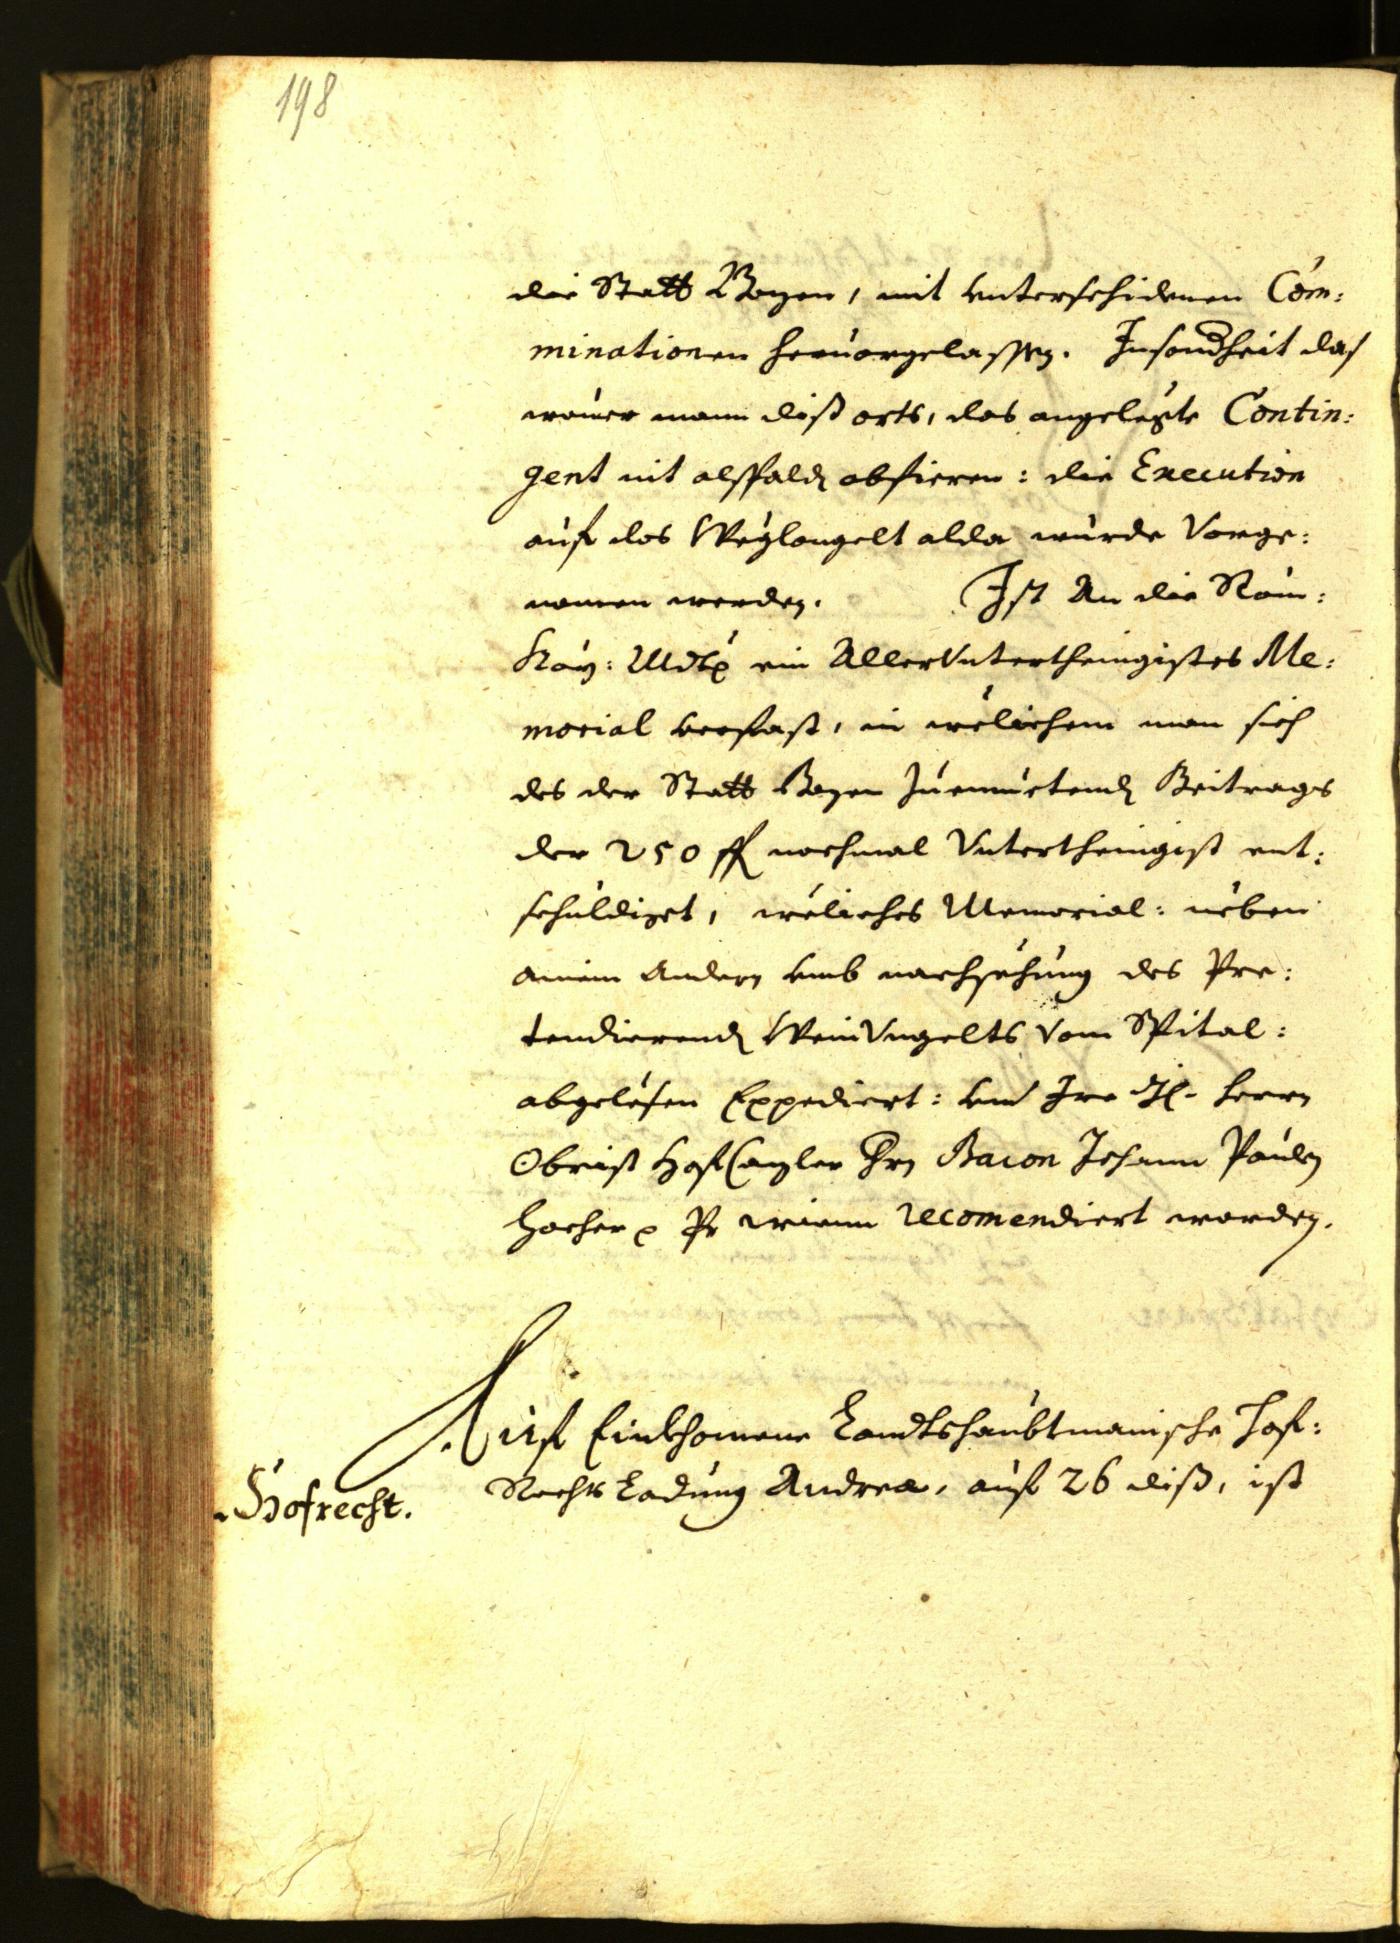 198
die Statt Bozen, mit vnterschidenen Com:
minationen heruorgelassen. Insondheit das
wouer mann diß orts, das angelegte Contin:
gent nit alßpald abfieren: die Execution
auf das Weglongelt alda wurde Vorge:
nomen werden. Ist An die Röm:
Kay: Mdt ein AllerVnterthenigistes Me:
morial verfast, in welichem man sich
des der Statt Bozen Zuemuetend Beitrags
der 250 fl nochmal Vnterthenigist ent:
schuldiget, weliches Memorial: neben
ainem Andern vmb nachsehung des Pre:
tendierend WeinVngelts Vom Spital:
abgelesen Expediert: vnd Ire herrn
Obrist HofCanzler Hrn Baron Johann Paulen
Hocher Pr wienn recomendiert worden.
Auf Einkhomene Landtshaubtmanische Hof:
Rechts Ladung Andrea, auf 26 diß, ist
Hofrecht.